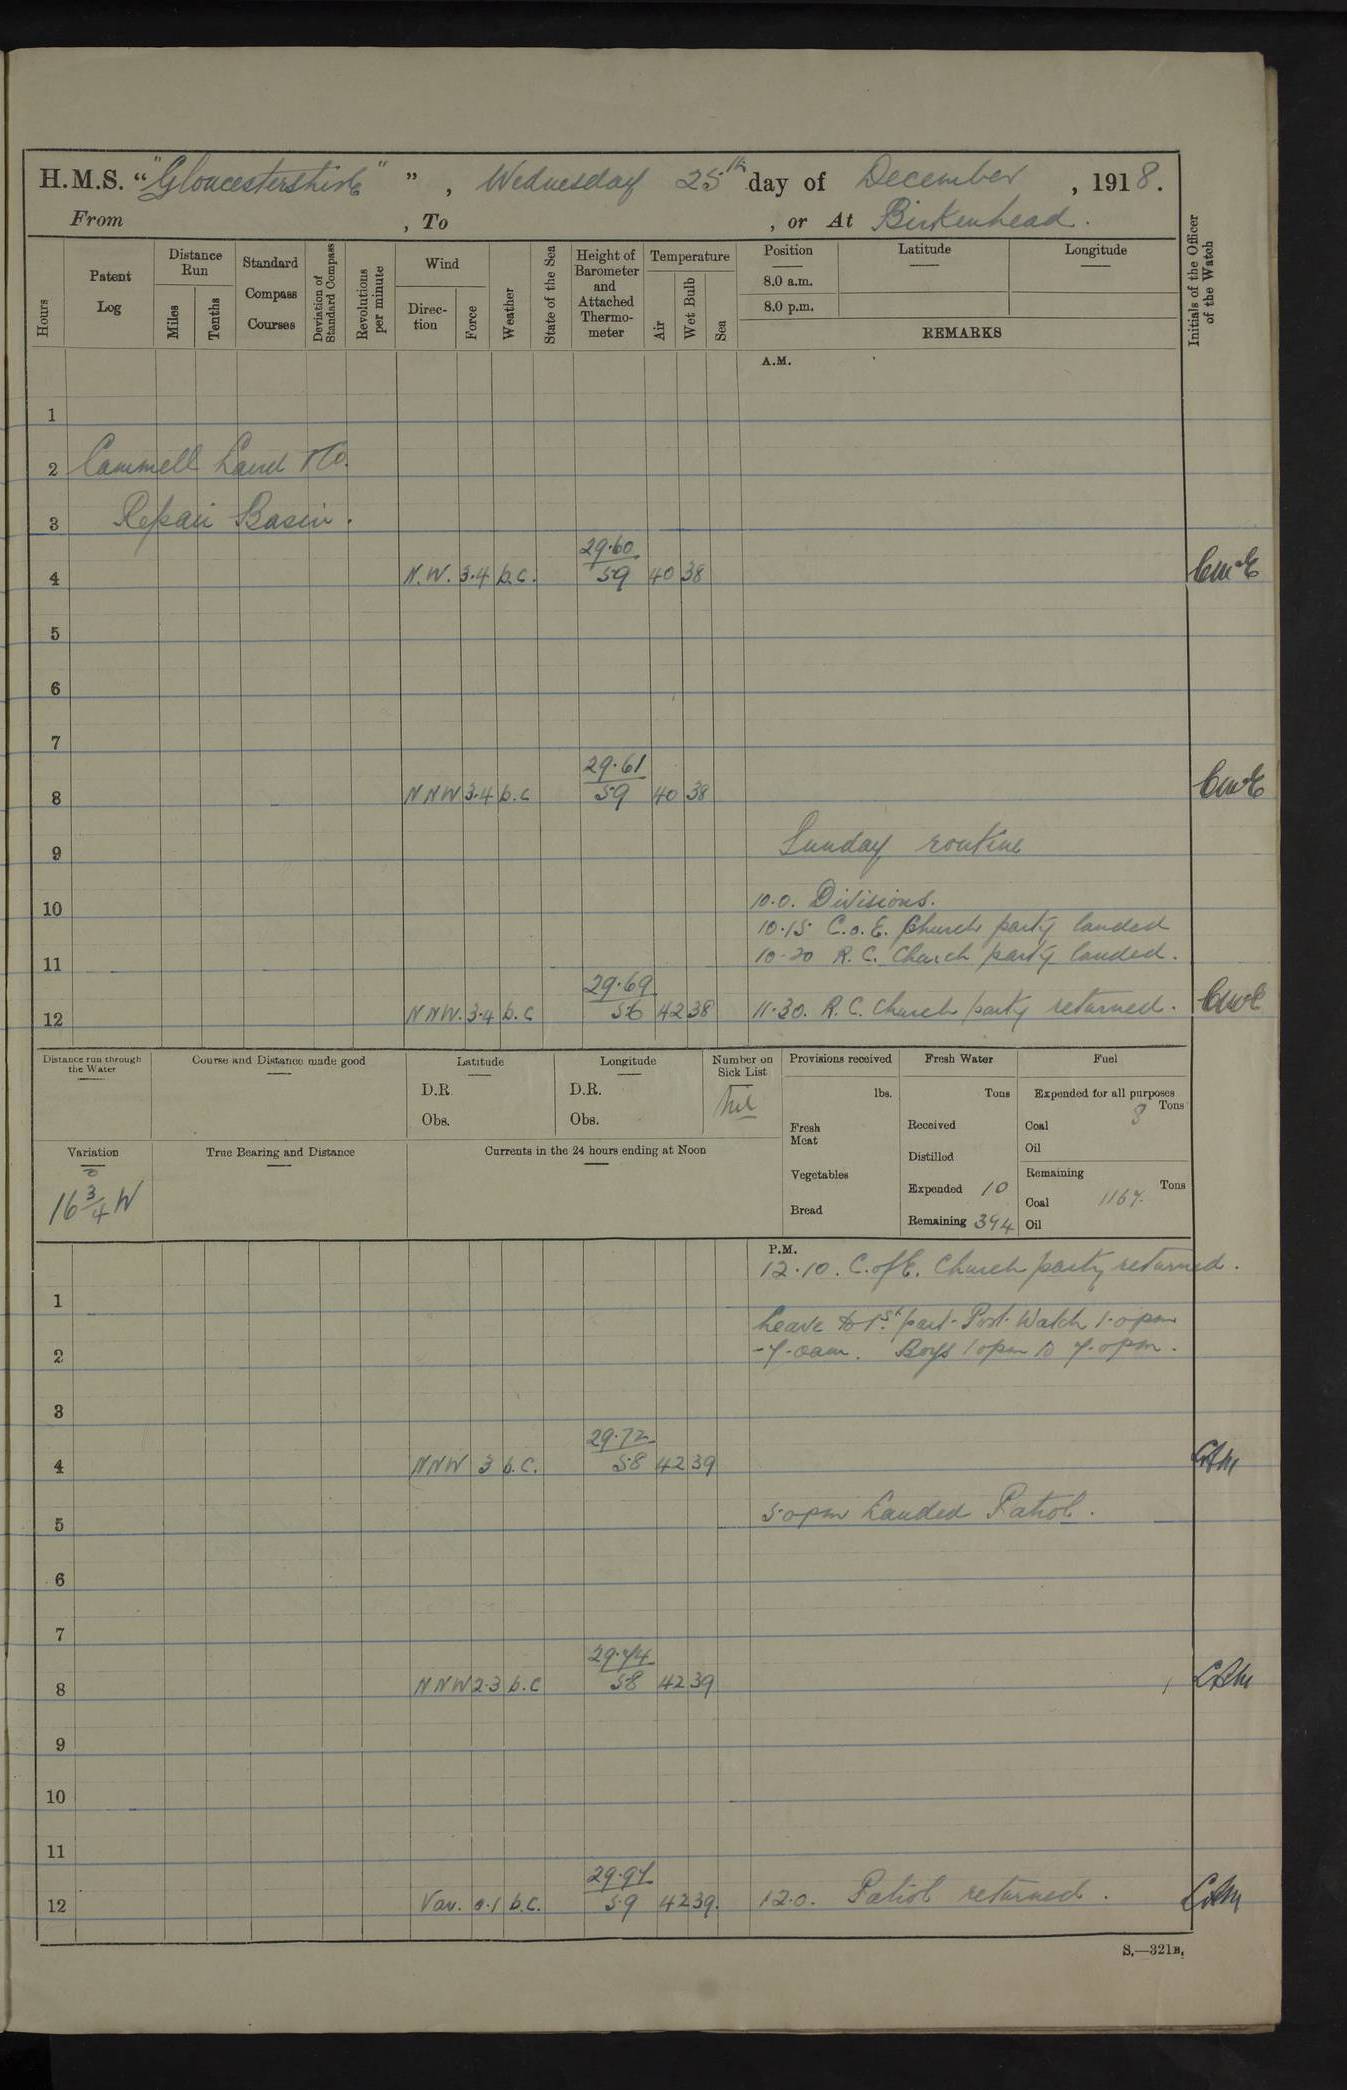 H.M.S. “"Gloucestershire"” , Wednesday 25th day of December , 1918.
From , To , or At Birkenhead.
Hours
Patent Log
Distance Run
Miles
Tenths
Standard Compass Courses
Deviation of Standard Compass
Revolutions per minute
Wind
Direction
Force
Weather
State of the Sea
Height of Barometer and Attached Thermometer
Temperature
Air
Wet Bulb
Sea
Position
8.0 a.m.
8.0 p.m.
Latitude
Longitude
REMARKS
Initials of the Officer of the Watch
A.M.
1
2 Cammell Laird & Co.
3 Repair Basin.
29.60
4 N.W. 3.4 b.c. 59 40 38
5
6
7
29.61
8 NNW 3.4 b.c 59 40 38
9 Sunday routine
10 10.0. Divisions.
10.15 C.o.E. Church party landed
11 10-30 R.C. Church party landed.
29.69
12 NNW. 3.4 b.c 56 42 38 11.30. R.C. Church party returned.
Distance run through the Water
Course and Distance made good
Latitude
D.R.
Obs.
Longitude
D.R.
Obs.
Number on Sick List
Nil
Provisions received
lbs.
Fresh Meat
Vegetables
Bread
Fresh Water
Tons
Received
Distilled
Expended 10
Remaining 394
Fuel
Expended for all purposes
Tons
Coal 8
Oil
Remaining
Tons
Coal 1167.
Oil
Variation
16 3/4° W
True Bearing and Distance
Currents in the 24 hours ending at Noon
P.M.
12.10. C.ofE. Church party returned.
1
Leave to 1st part Port Watch 1.0pm
2 -7.0am. Boys 1opm to 7.0pm.
3
29.72
4 NNW 3 b.c. 58 42 39
5 5.0pm Landed Patrol.
6
7
29.74
8 NNW 2.3 b.c 58 42 39
9
10
11
29.97
12 Var. 0.1 b.c. 59 42 39. 12.0. Patrol returned.
S.—321B.